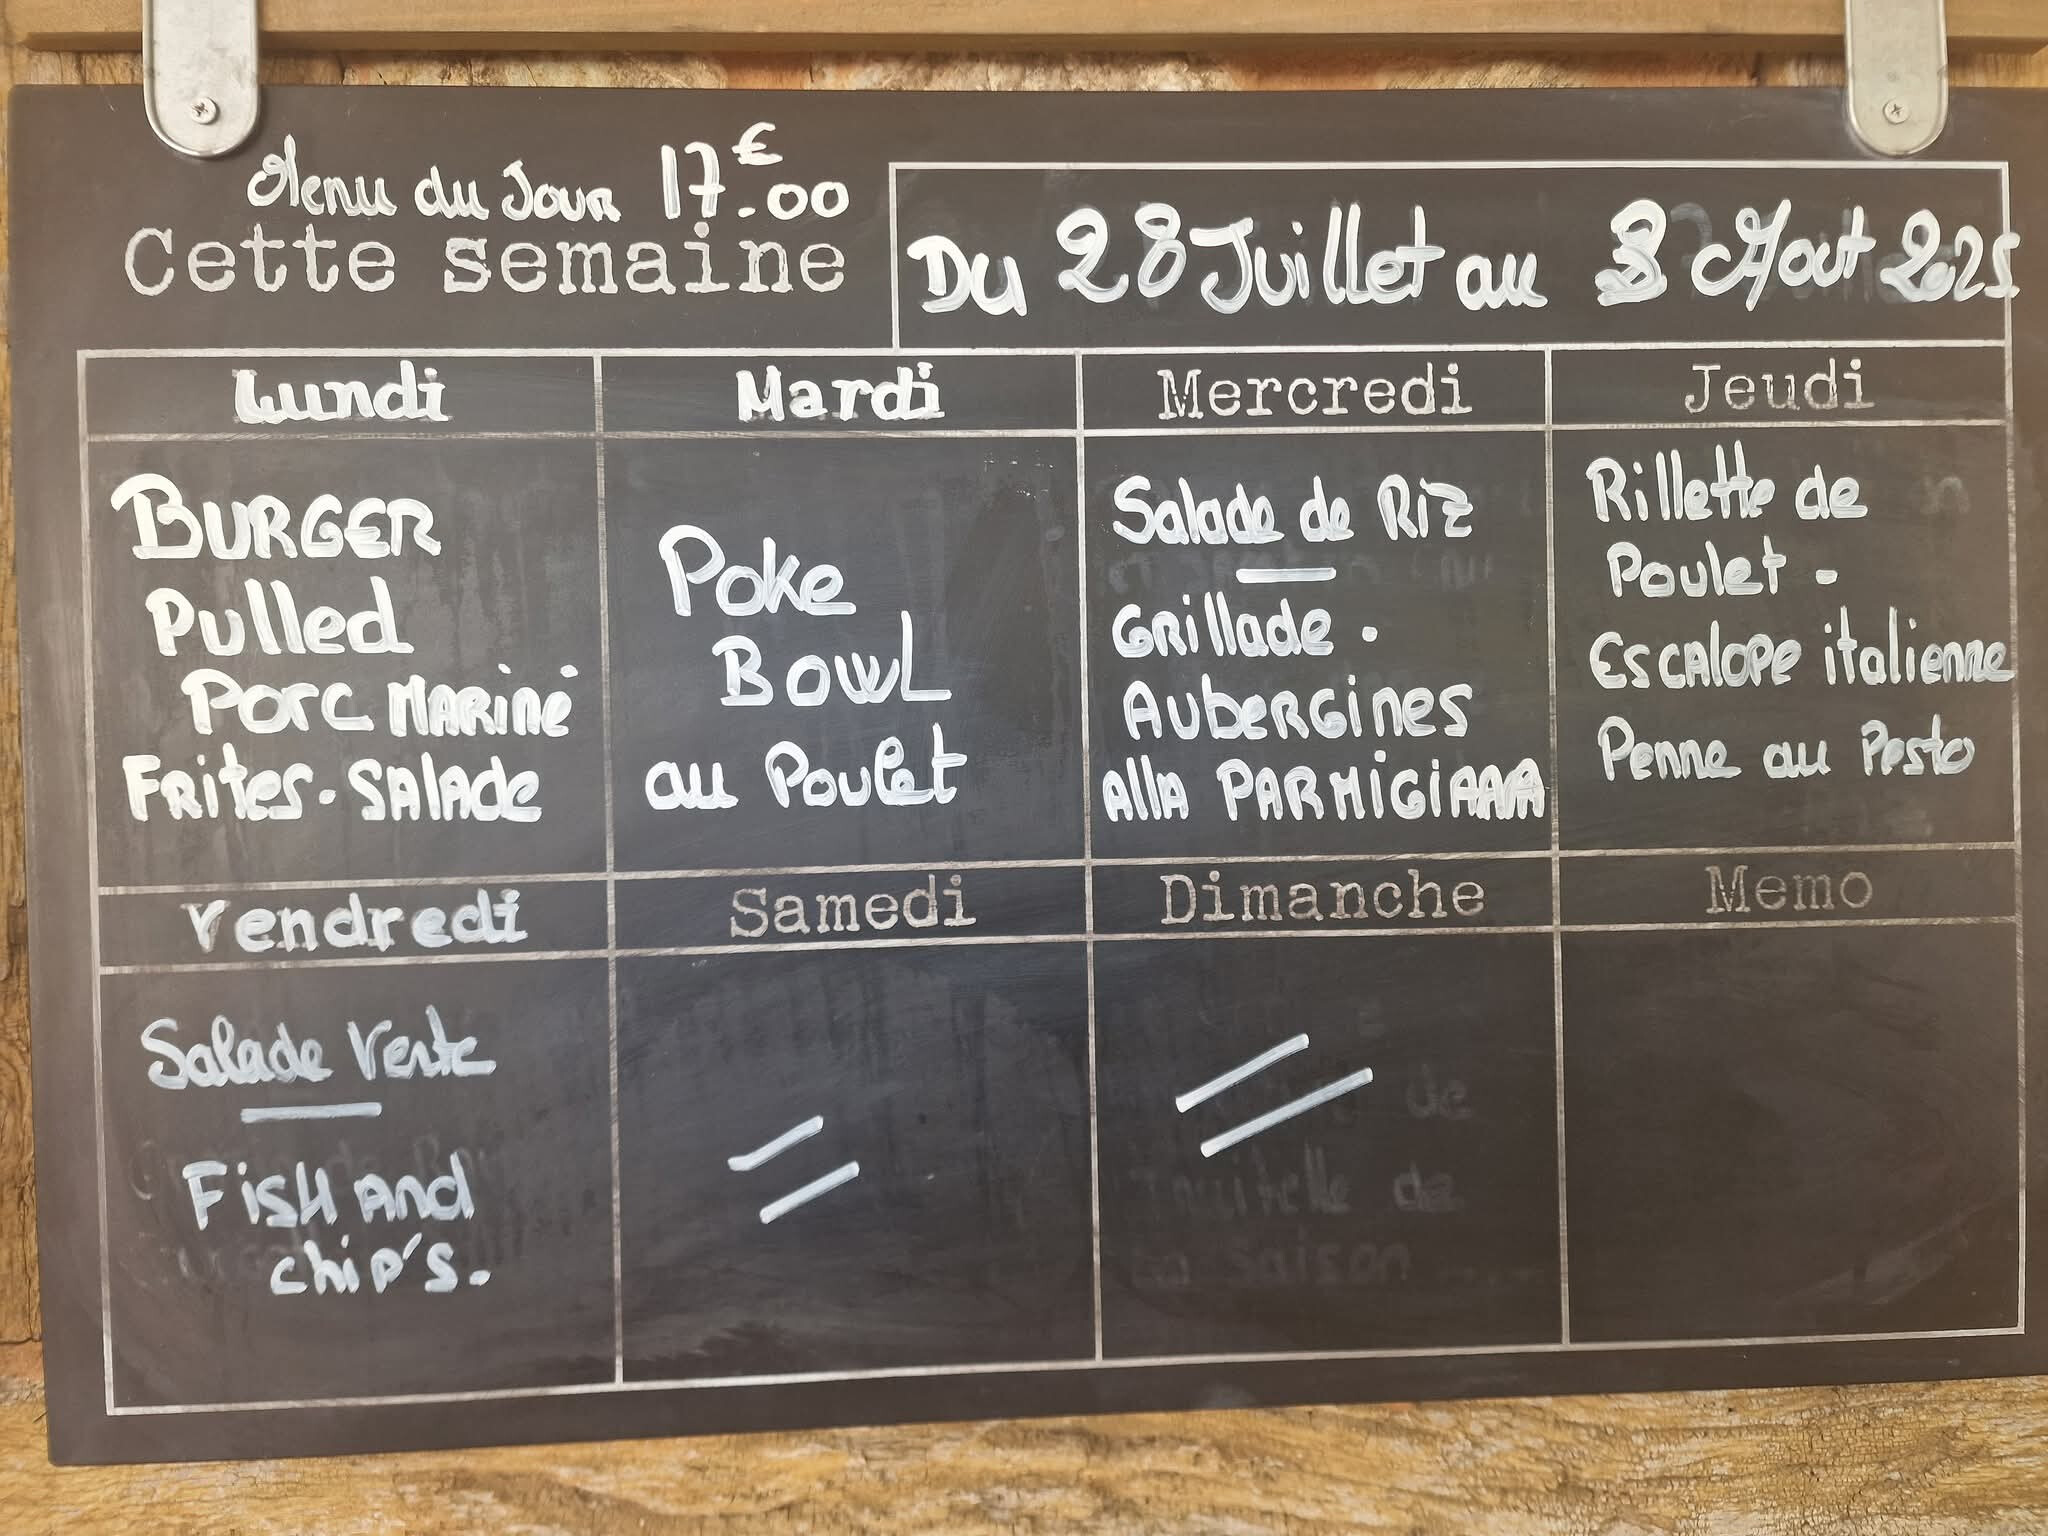 Menu du Jour 17€.00
Cette semaine
Du 28 Juillet au 3 Aout 2025.
Lundi
Mardi
Mercredi
Jeudi
BURGER
Pulled
Porc MARiné
FRites. SALAde
Poke
BowL
au Poulet
Salade de Riz
GRillade.
AubeRgines
allA PARMiGiAnA
Rillette de
Poulet -
EscAlope italienne
Penne au Pesto
Vendredi
Samedi
Dimanche
Memo
Salade Verte
FisH And
chip's.